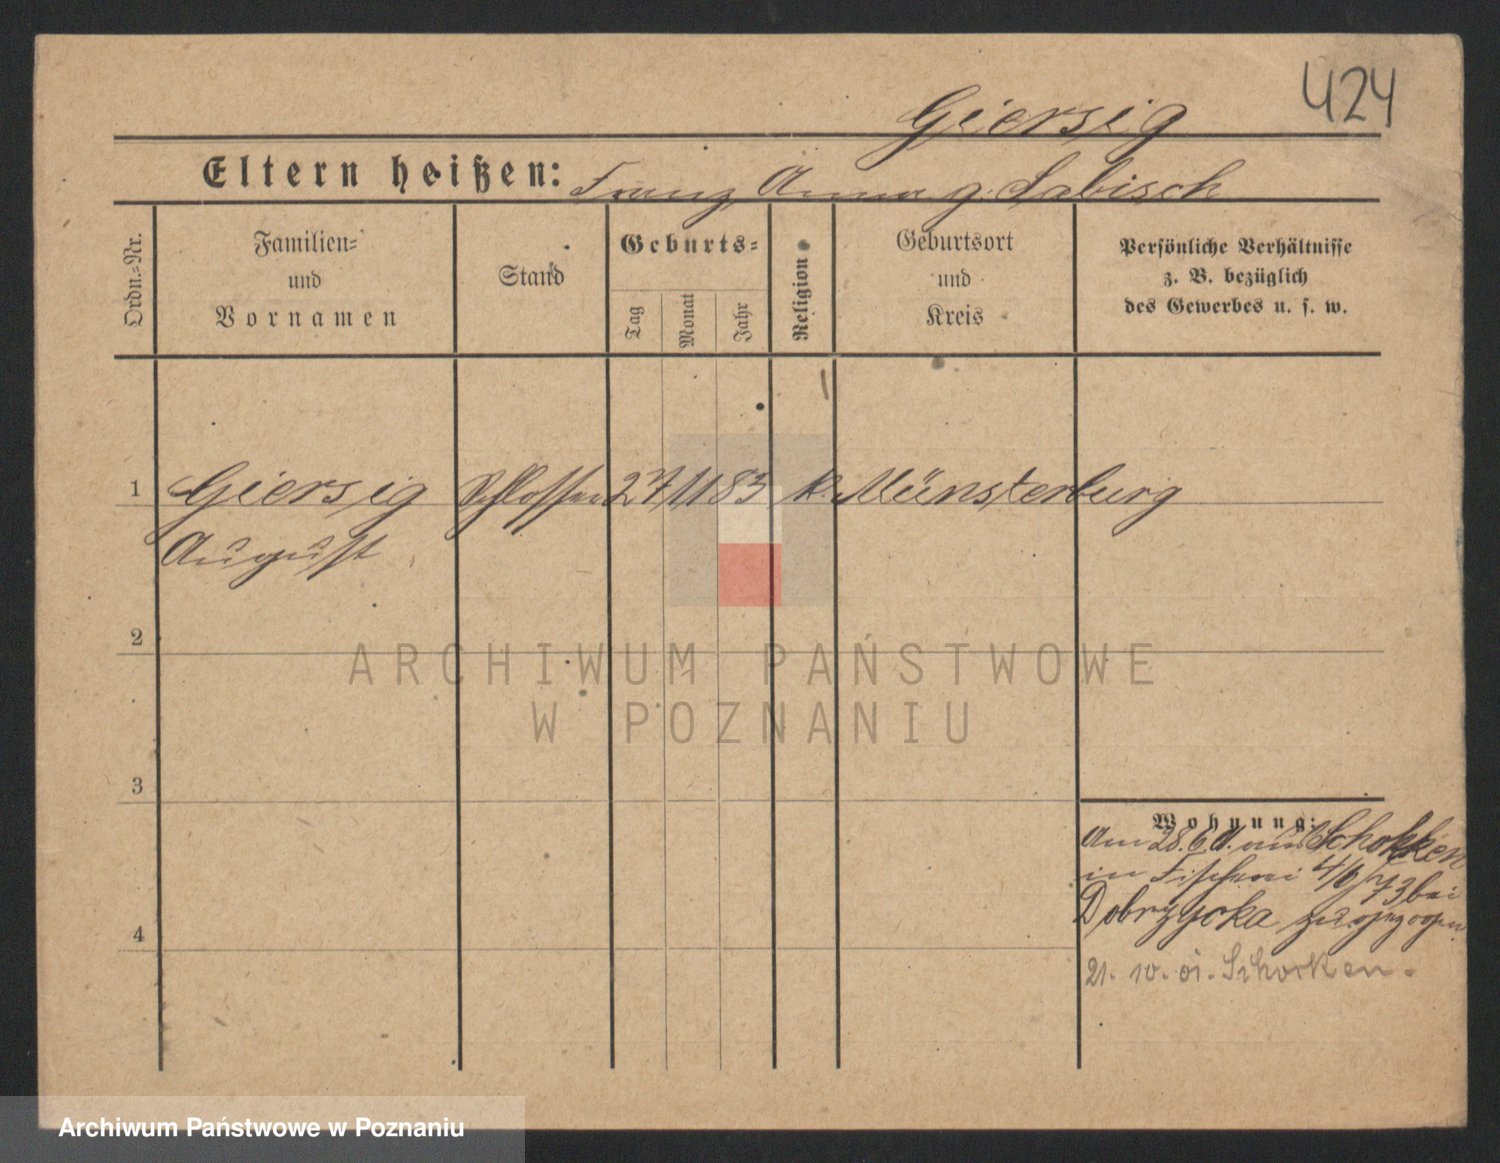 424
Giersig
Eltern heißen: Franz, Anna g. Labisch
Ordn.-Nr.
Familien-
und
Vornamen
Stand
Geburts-
Tag
Monat
Jahr
Religion
Geburtsort
und
Kreis
Persönliche Verhältnisse
z. B. bezüglich
des Gewerbes u. s. w.
1 Giersig Schlosser 27 11 83 k. Münsterburg
August
2
ARCHIWUM PAŃSTWOWE
W POZNANIU
3
Wohnung:
Am 28.6. d. aus Schokken
in Fischerei 4/6 73 bei
Dobrzycka zugezogen
4
21. 10. 01. Schocken.
Archiwum Państwowe w Poznaniu